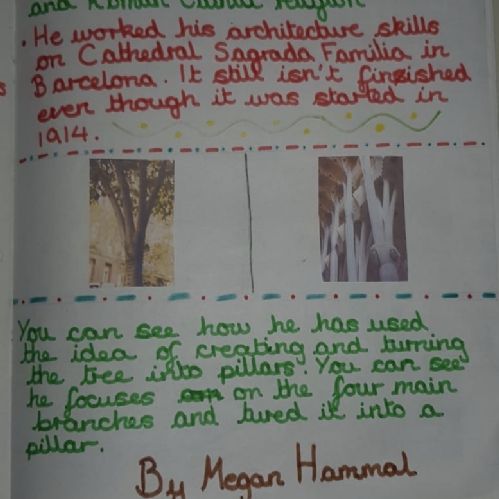 and Roman
religion
He worked his architecture skills
on Cathedral Sagrada Familia in
Barcelona. It still isn't finzished
even though it was started in
1914.
You can see how he has used
the idea of creating and turning
the tree into pillars. You can see
he focuses on the four main
branches and tured it into a
pillar.
By Megan Hammal